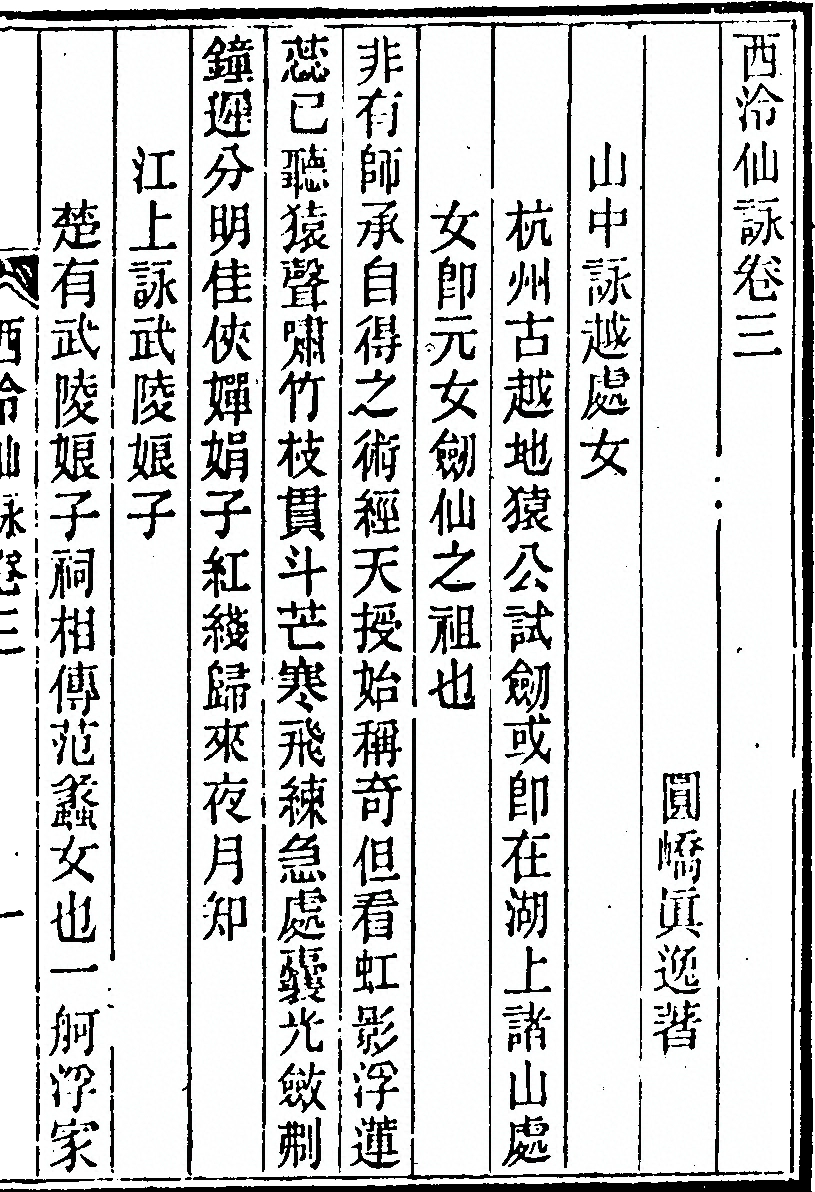 西泠仙詠卷三
圓嶠眞逸著
山中詠越處女
杭州古越地猿公試劒或卽在湖上諸山處
女卽元女劒仙之祖也
非有師承自得之術經天授始稱奇但看虹影浮蓮
蕊已聽猿聲嘯竹枝貫斗芒寒飛練急處囊光斂剸
鐘遲分明佳俠嬋娟子紅綫歸來夜月知
江上詠武陵娘子
楚有武陵娘子祠相傳范蠡女也一舸浮家
西泠仙詠卷三
一